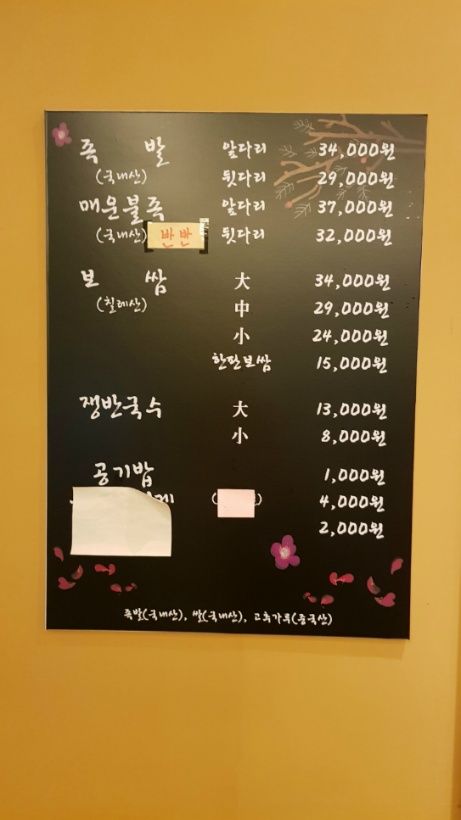 족 발 앞다리 34,000원
(국내산) 뒷다리 29,000원
매운불족 앞다리 37,000원
(국내산) 반반 뒷다리 32,000원
보 쌈 大 34,000원
(칠레산) 中 29,000원
小 24,000원
한판보쌈 15,000원
쟁반국수 大 13,000원
小 8,000원
공기밥 1,000원
( ) 4,000원
2,000원
족발(국내산), 쌀(국내산), 고춧가루(중국산)